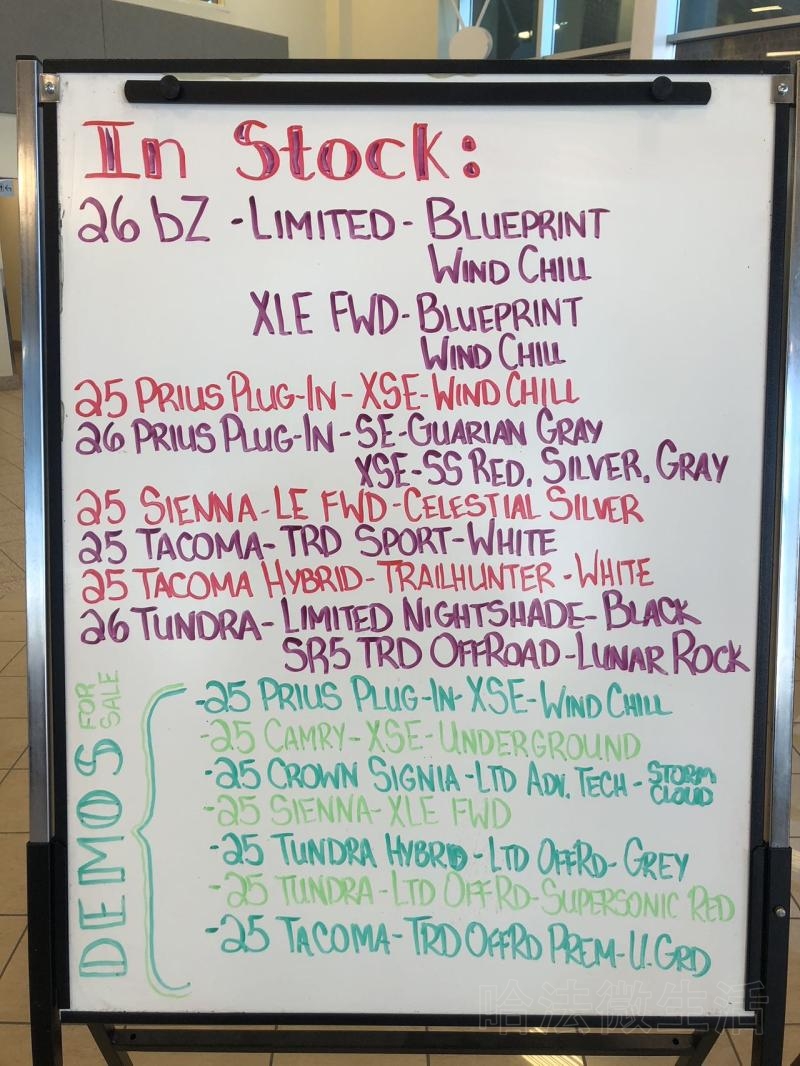 In Stock:
26 bZ - LIMITED - BLUEPRINT
WIND CHILL
XLE FWD - BLUEPRINT
WIND CHILL
25 PRIUS PLUG-IN - XSE - WIND CHILL
26 PRIUS PLUG-IN - SE - GUARIAN GRAY
XSE - SS RED, SILVER, GRAY
25 SIENNA - LE FWD - CELESTIAL SILVER
25 TACOMA - TRD SPORT - WHITE
25 TACOMA HYBRID - TRAILHUNTER - WHITE
26 TUNDRA - LIMITED NIGHTSHADE - BLACK
SR5 TRD OFFROAD - LUNAR ROCK
DEMOS FOR SALE
-25 PRIUS PLUG-IN - XSE - WIND CHILL
-25 CAMRY - XSE - UNDERGROUND
-25 CROWN SIGNIA - LTD ADV. TECH - STORM CLOUD
-25 SIENNA - XLE FWD
-25 TUNDRA HYBRID - LTD OFFRD - GREY
-25 TUNDRA - LTD OFFRD - SUPERSONIC RED
-25 TACOMA - TRD OFFRD PREM - U.GRD
哈法微生活